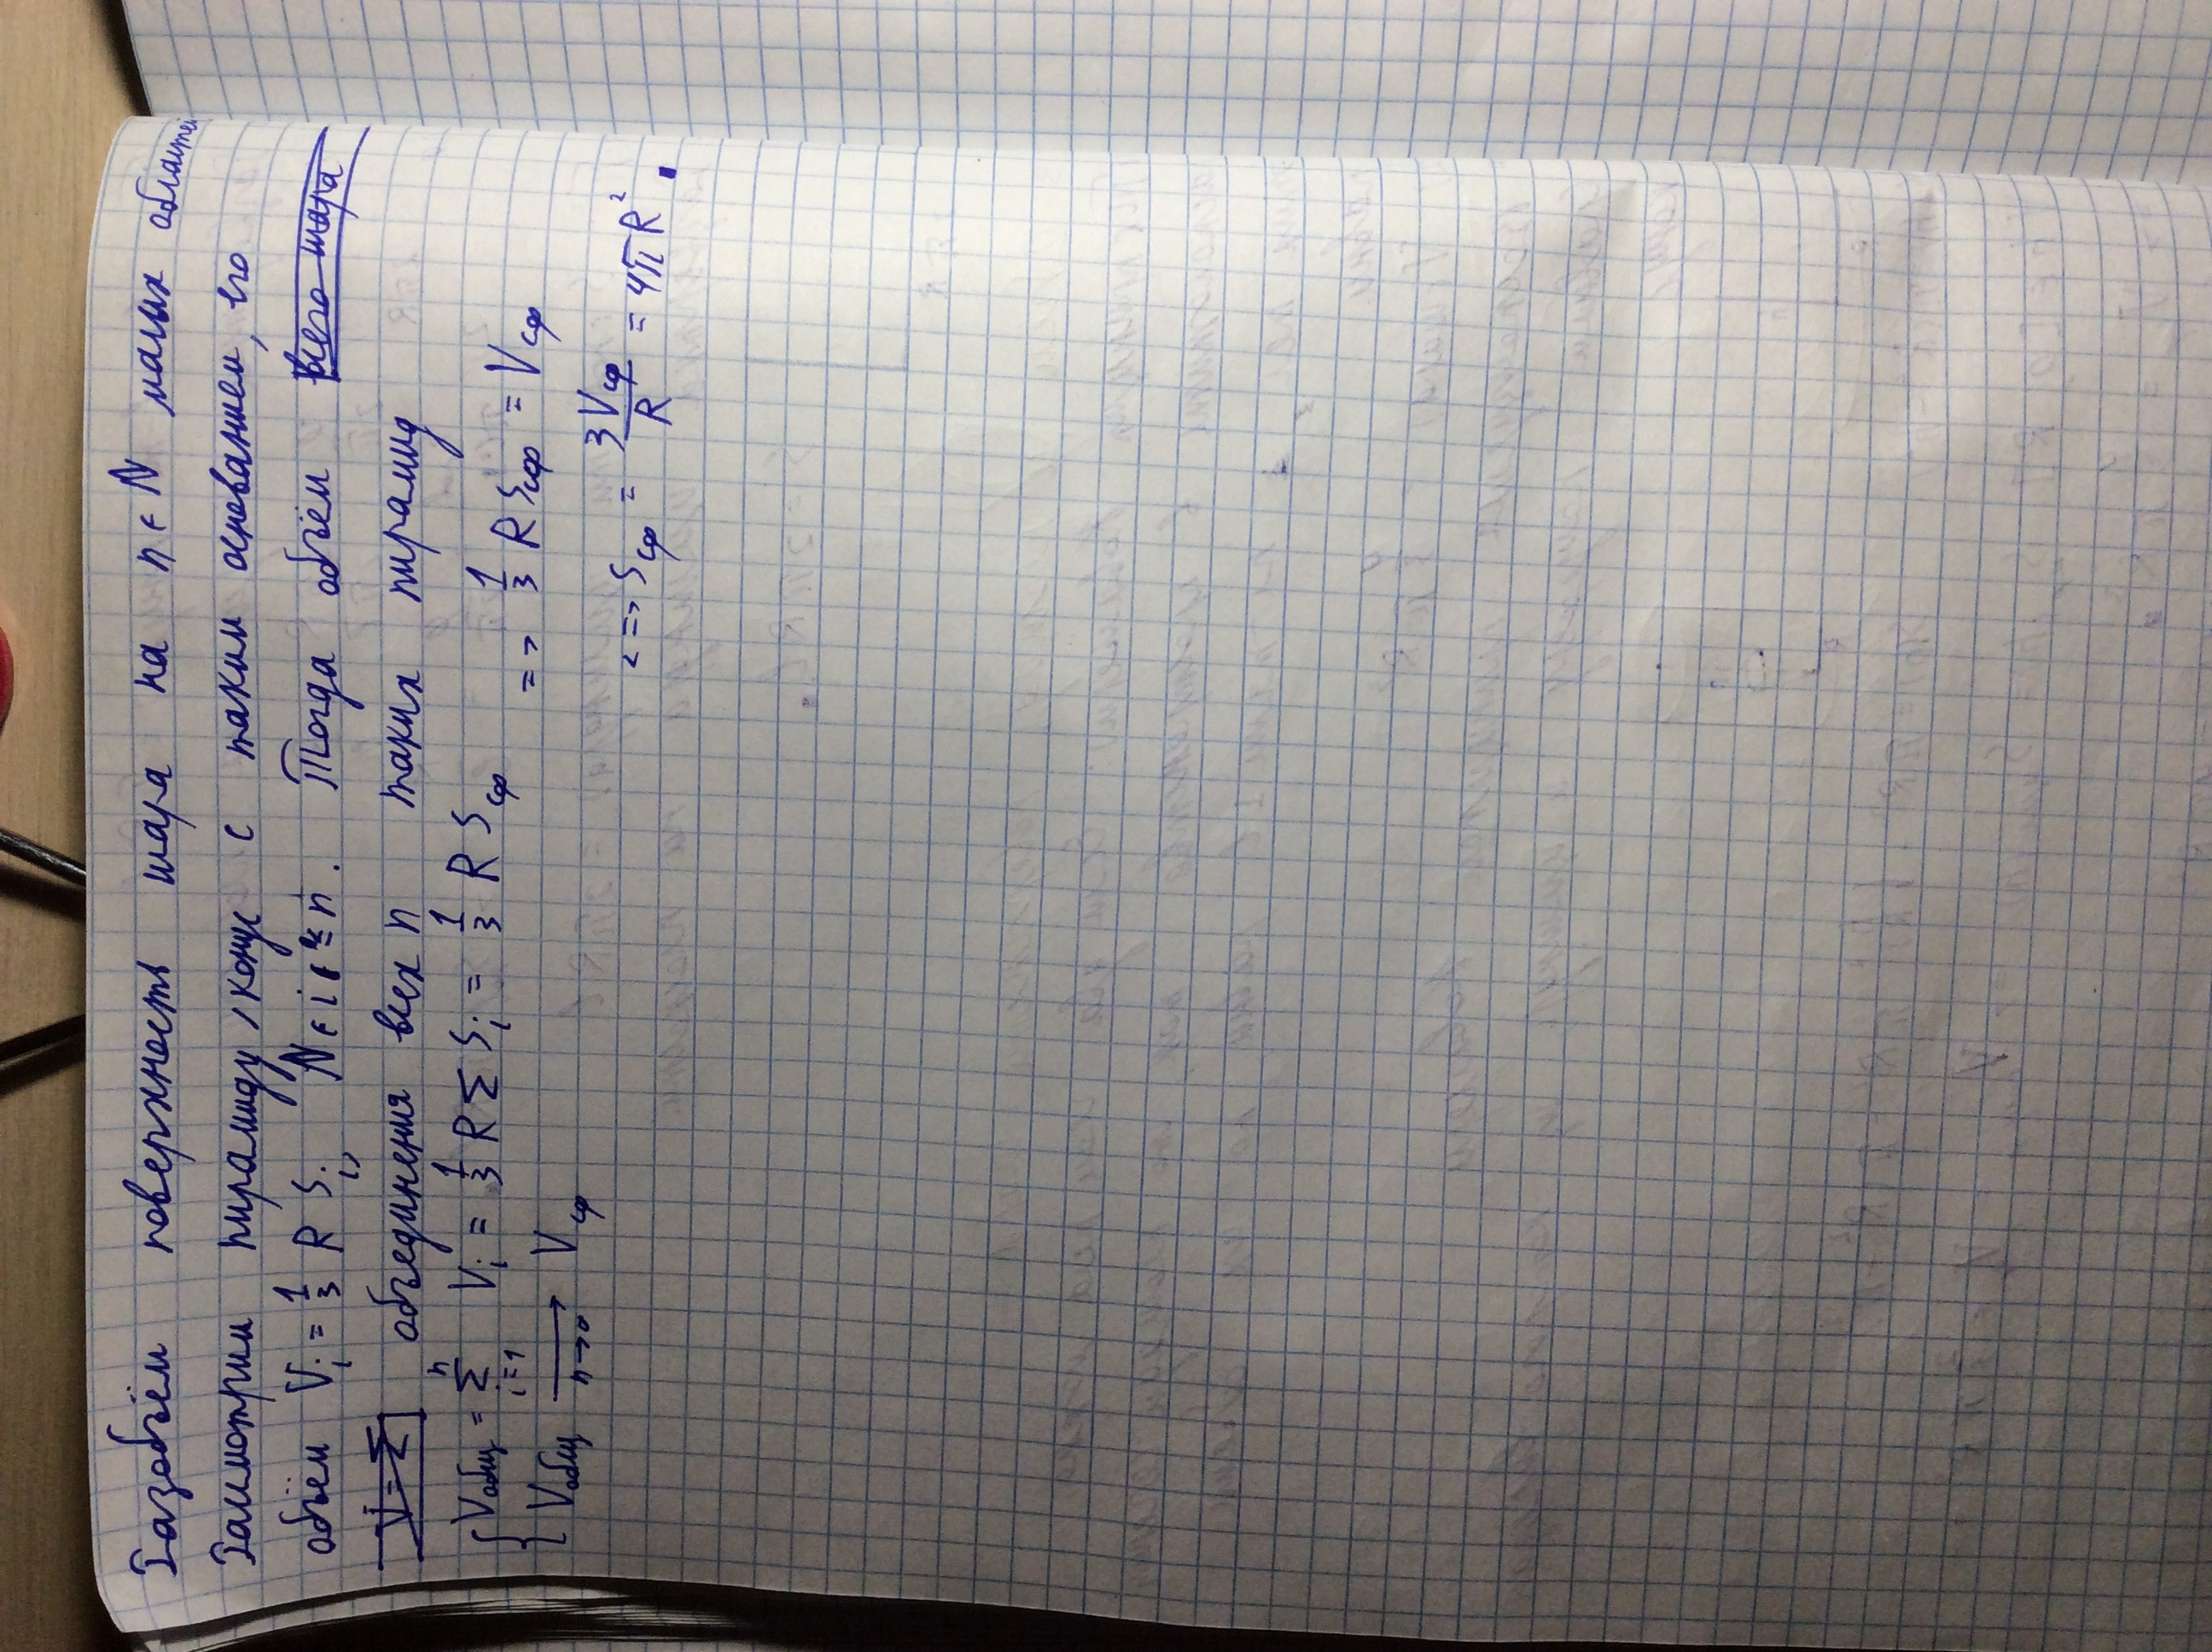 Разобьём поверхность шара на n ∈ ℕ малых областей
Рассмотрим пирамиду/конус с таким основанием, его
объём V_i = 1/3 R S_i, ℕ ∋ i ≤ n. Тогда объём всего шара
V = Σ объединения всех n таких пирамид
{ V_общ = Σ_{i=1}^{n} V_i = 1/3 R Σ S_i = 1/3 R S_сф
V_общ →_{n→0} V_сф
=> 1/3 R S_сф = V_сф
<=> S_сф = 3V_сф/R = 4πR².